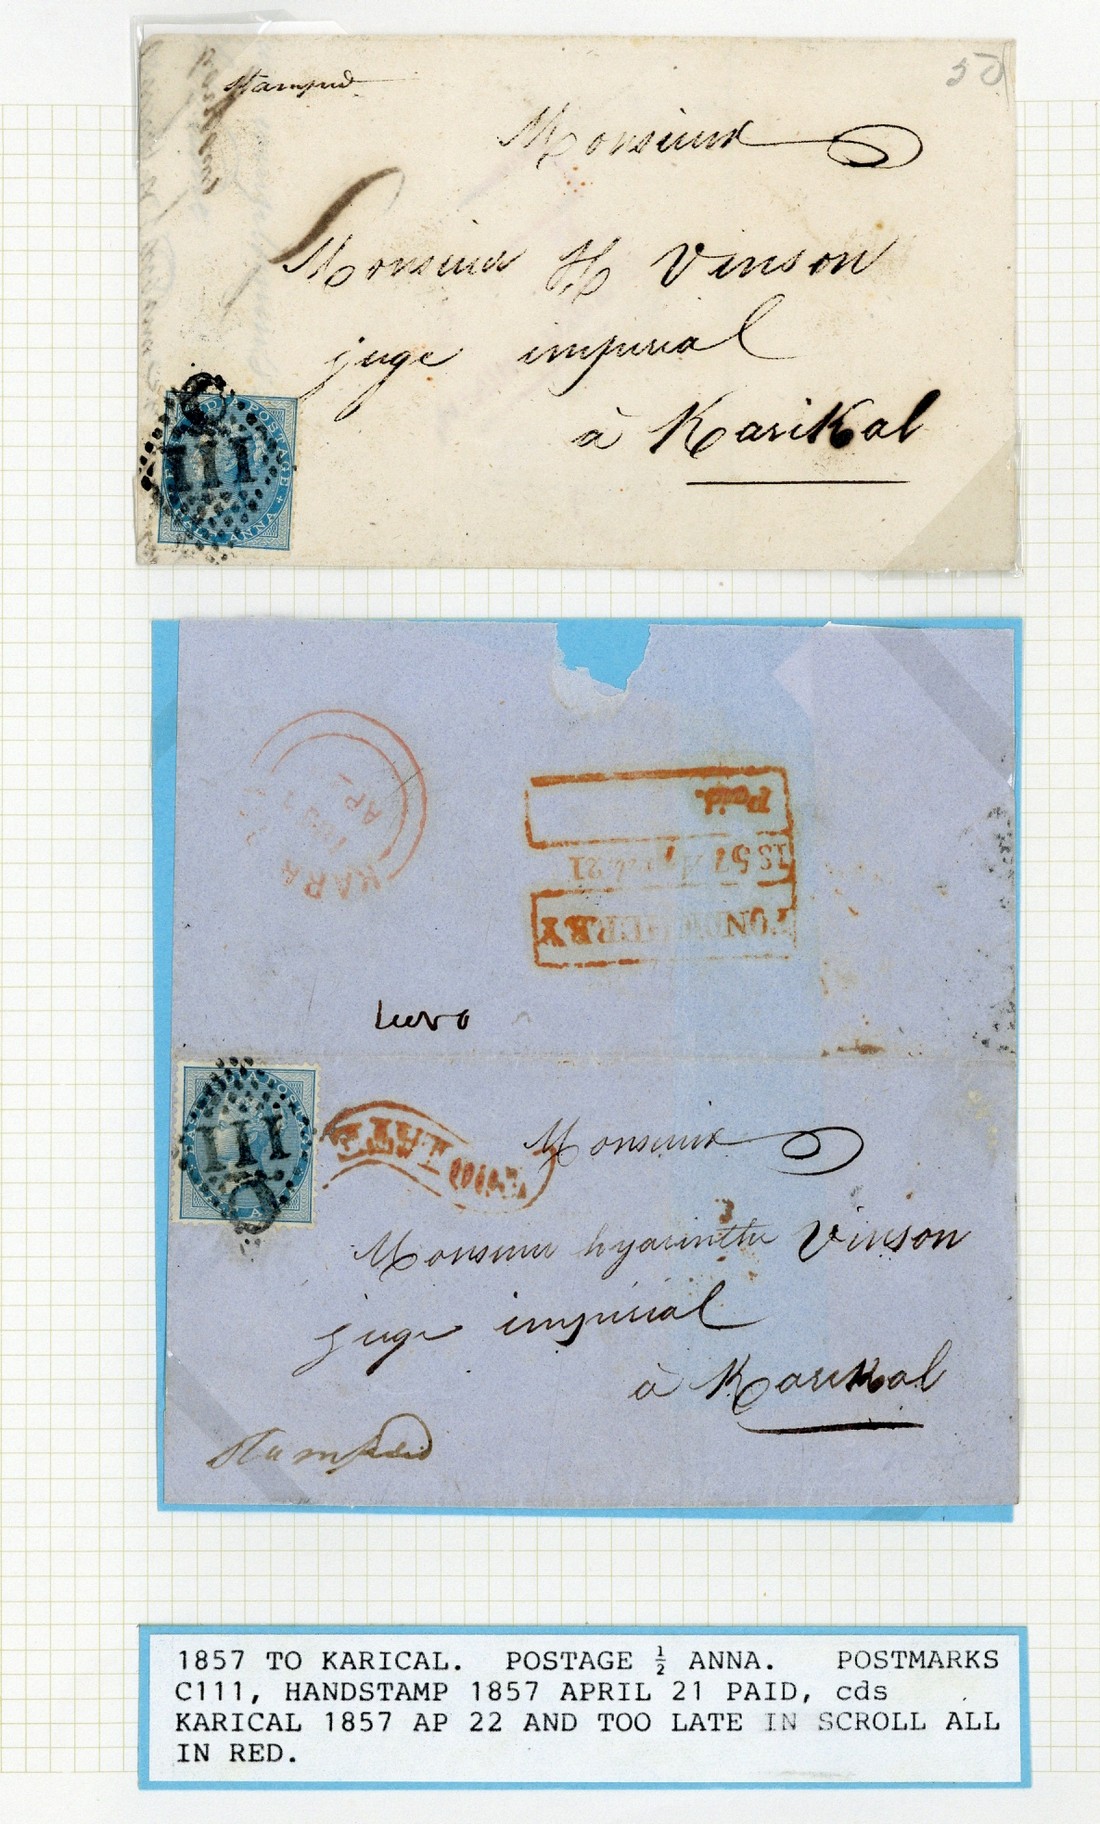 Stamped
50
Monsieur
Monsieur H Vinson
juge impérial
à Karikal
C
111
POSTAGE
ANNA
KARA
AP
Paid.
1857 April 21
PONDICHERRY
111
C
LATE
Monsieur
Monsieur hyacinthe Vinson
juge impérial
à Karikal
Stamped
1857 TO KARICAL. POSTAGE ½ ANNA. POSTMARKS
C111, HANDSTAMP 1857 APRIL 21 PAID, cds
KARICAL 1857 AP 22 AND TOO LATE IN SCROLL ALL
IN RED.